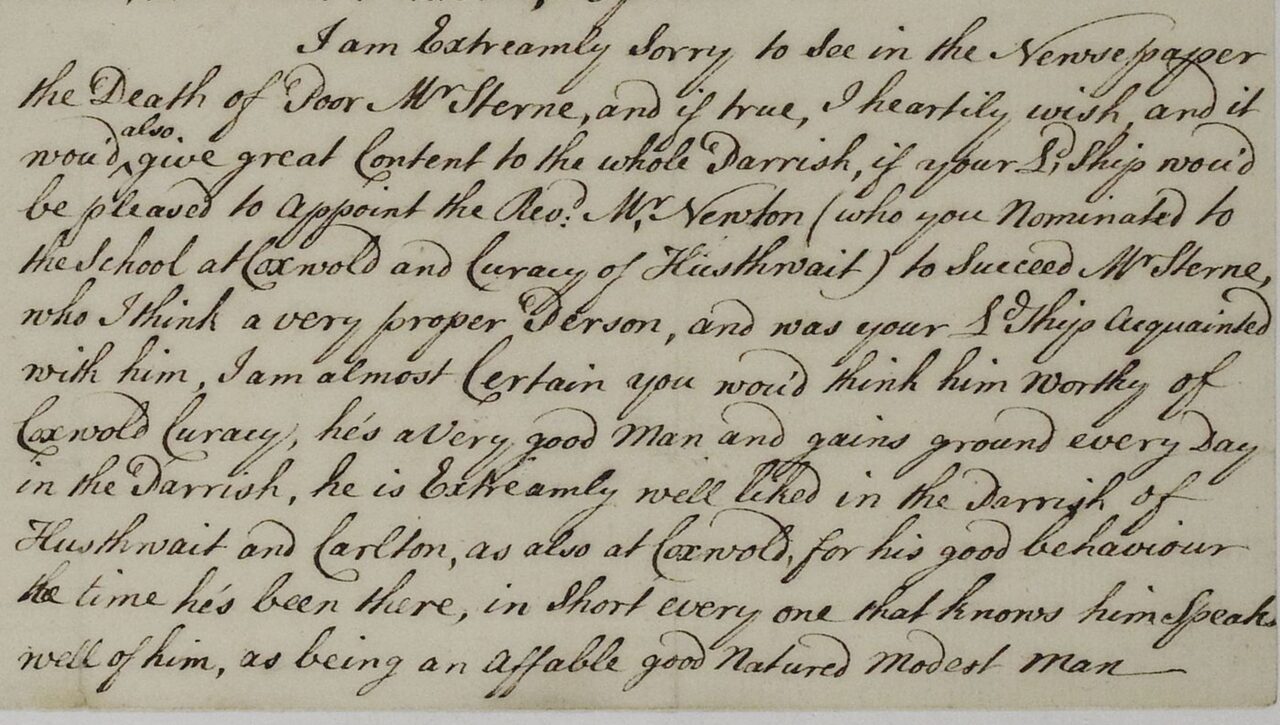 I am Extreamly Sorry to See in the Newsepaper
the Death of Poor Mr Sterne, and if true, I heartily wish, and it
wou'd also give great Content to the whole Parrish, if your Ld Ship wou'd
be pleased to appoint the Revd. Mr. Newton (who you Nominated to
the School at Coxwold and Curacy of Husthwait) to Succeed Mr Sterne,
who I think a very proper Person, and was your Ld Ship acquainted
with him, I am almost Certain you wou'd think him Worthy of
Coxwold Curacy, he's a Very good Man and gains ground every Day
in the Parrish, he is Extreamly well liked in the Parrish of
Husthwait and Carlton, as also at Coxwold, for his good behaviour
the time he's been there, in Short every one that knows him Speaks
well of him, as being an affable good Natured Modest Man